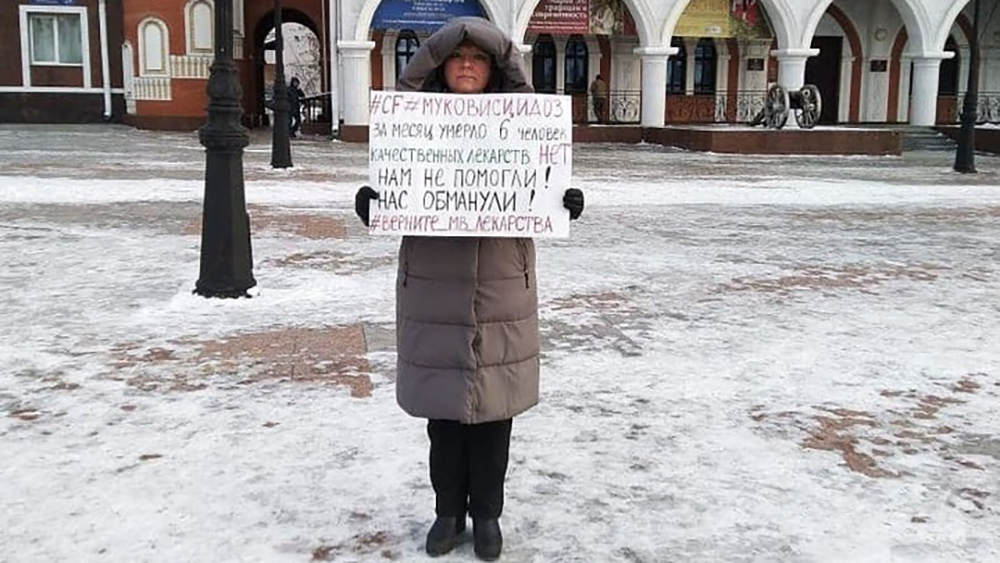 #CF#МУКОВИСЦИДОЗ
ЗА МЕСЯЦ УМЕРЛО 6 ЧЕЛОВЕК
КАЧЕСТВЕННЫХ ЛЕКАРСТВ НЕТ
НАМ НЕ ПОМОГЛИ!
НАС ОБМАНУЛИ!
#ВЕРНИТЕ_МВ_ЛЕКАРСТВА